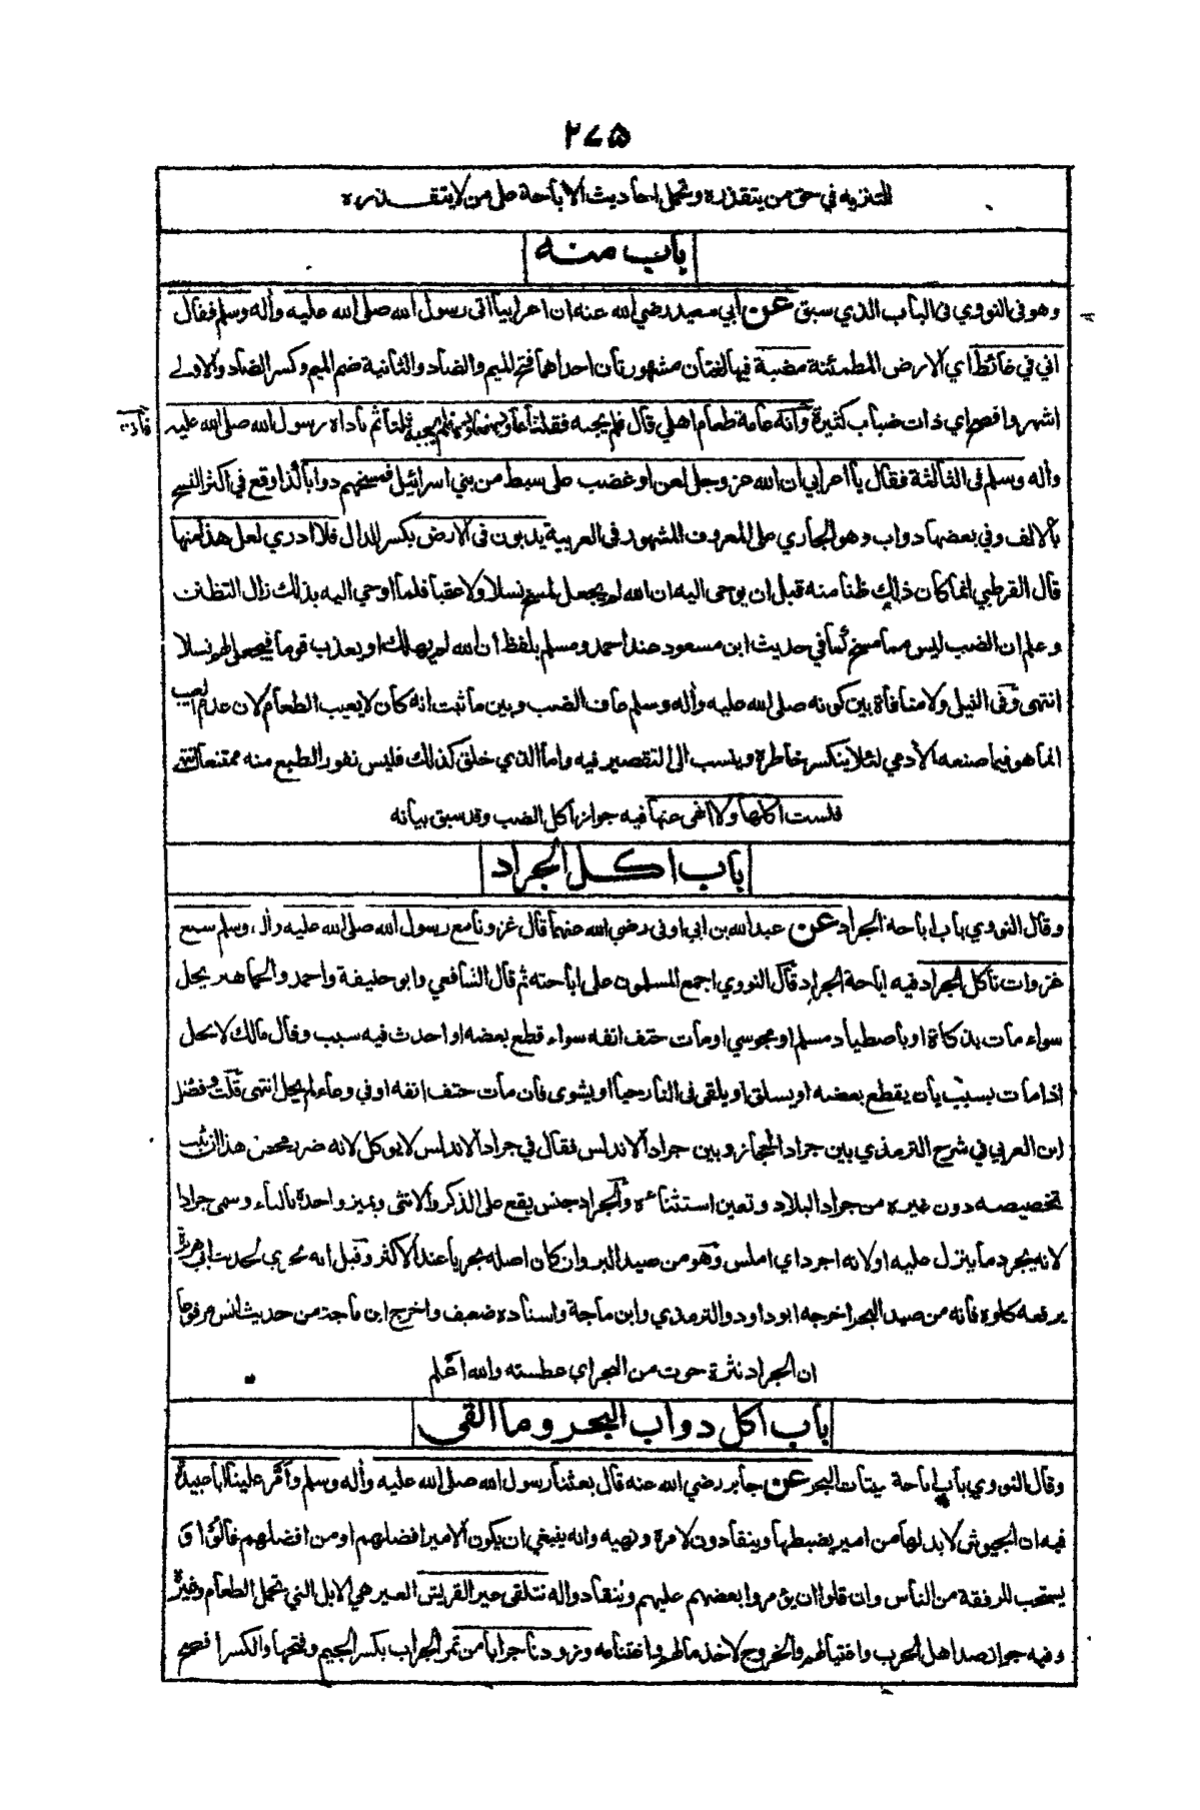 ٢٧٥
للتنزيه في حق من يتقذره وتحمل احاديث الاباحة على من لا يتقذره
باب منه
وهو في النووي في الباب الذي سبق عن ابي سعيد رضي الله عنه ان اعرابيا اتى رسول الله صلى الله عليه وأله وسلم فقال
اني في غائط اي الارض المطمئنة مضبة فيها لغتان مشهورتان احداهما فتح الميم والضاد والثانية ضم الميم وكسر الضاد والاولى
اشهر وافصح اي ذات ضباب كثيرة وانه عامة طعام اهلي قال فلم يجبه فقلنا عاوده فعاوده فلم يجبه ثلثا ثم ناداه رسول الله صلى الله عليه
وأله وسلم في الثالثة فقال يا اعرابي ان الله عز وجل لعن او غضب على سبط من بني اسرائيل فمسخهم دوابا كذا وقع في اكثر النسخ
بالالف وفي بعضها دواب وهو الجاري على المعروف المشهور في العربية يدبون في الارض بكسر الدال فلا ادري لعل هذا منها
قال القرطبي انما كان ذلك ظنا منه قبل ان يوحى اليه ان الله لم يجعل لمسخ نسلا ولا عقبا فلما اوحي اليه بذلك زال التظنن
وعلم ان الضب ليس مما مسخ كما في حديث ابن مسعود عند احمد ومسلم بلفظ ان الله لم يهلك او يعذب قوما فيجعل لهم نسلا
انتهى وفي النيل ولا منافاة بين كونه صلى الله عليه وأله وسلم عاف الضب وبين ما ثبت انه كان لا يعيب الطعام لان عدم العيب
انما هو فيما صنعه الأدمي لئلا ينكسر خاطره وينسب الى التقصير فيه واما الذي خلق كذلك فليس نفور الطبع منه ممتنعا انتهى
فلست اكلها ولا انهى عنها فيه جواز اكل الضب وقد سبق بيانه
باب اكل الجراد
وقال النووي باب اباحة الجراد عن عبد الله بن ابي اوفى رضي الله عنهما قال غزونا مع رسول الله صلى الله عليه وأله وسلم سبع
غزوات ناكل الجراد فيه اباحة الجراد قال النووي اجمع المسلمون على اباحته ثم قال الشافعي وابو حنيفة واحمد والجماهير يحل
سواء مات بذكاة او باصطياد مسلم او مجوسي او مات حتف انفه سواء قطع بعضه او احدث فيه سبب وقال مالك لا يحل
اذا مات بسبب بأن يقطع بعضه او يسلق او يلقى في النار حيا او يشوى فان مات حتف انفه او في وعاء لم يحل انتهى قلت وفصل
ابن العربي في شرح الترمذي بين جراد الحجاز وبين جراد الاندلس فقال في جراد الاندلس لا يوكل لانه ضرر محض هذا ان ثبت
تخصيصه دون غيره من جراد البلاد وتعين استثناءه والجراد جنس يقع على الذكر والانثى ويميز واحدة بالتاء وسمي جرادا
لانه يجرد ما ينزل عليه او لانه اجرد اي املس وهو من صيد البر وان كان اصله بحريا عند الاكثر وقيل انه بحري لحديث ابي هريرة
يرفعه كلوه فانه من صيد البحر اخرجه ابو داود والترمذي وابن ماجة واسناده ضعيف واخرج ابن ماجة من حديث انس مرفوعا
ان الجراد نثرة حوت من البحر اي عطسته والله اعلم
باب اكل دواب البحر وما القى
وقال النووي باب اباحة ميتات البحر عن جابر رضي الله عنه قال بعثنا رسول الله صلى الله عليه وأله وسلم وامر علينا ابا عبيدة
فيه ان الجيوش لا بد لها من امير يضبطها وينقادون لامره ونهيه وانه ينبغي ان يكون الامير افضلهم او من افضلهم قالوا
يستحب للرفقة من الناس وان قلوا ان يؤمروا بعضهم عليهم وينقادوا له نتلقى عيرا لقريش العير هي الابل التي تحمل الطعام وغيره
وفيه جواز صد اهل الحرب واغتيالهم والخروج لاخذ مالهم واغتنامه وزودنا جرابا من تمر الجراب بكسر الجيم وفتحها والكسر افصح